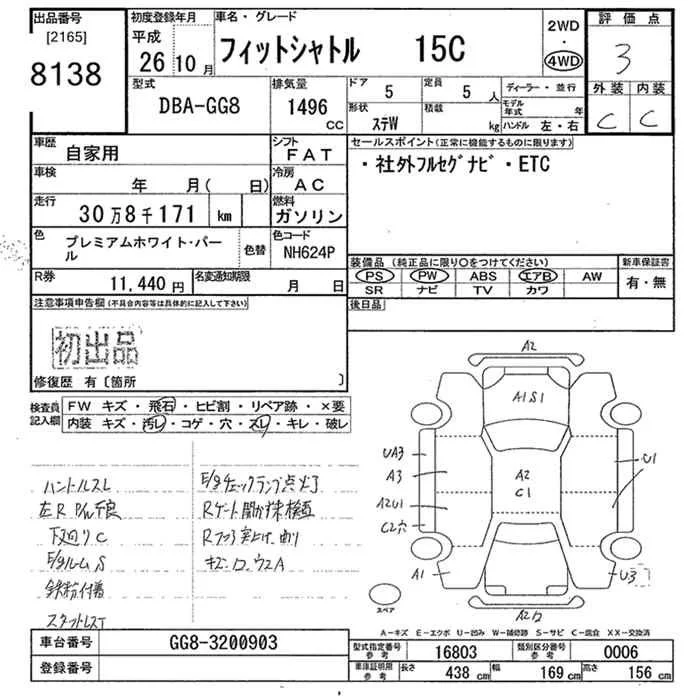 出品番号
[2165]
8138
初度登録年月
平成
26 10 月
車名・グレード
フィットシャトル 15C
2WD
・
4WD
評価点
3
外装 内装
C C
型式
DBA-GG8
排気量
1496
CC
ドア
5
定員
5 人
形状
ステW
積載
kg
ディーラー・並行
モデル年式 年
ハンドル 左・右
車歴
自家用
シフト
FAT
車検
年 月( 日)
冷房
AC
走行
30 万 8 千 171 km
燃料
ガソリン
色
プレミアムホワイト・パール
色替
色コード
NH624P
R券
11,440 円
名変通知期限
月 日
セールスポイント(正常に機能するものに限ります)
・社外フルセグナビ・ETC
装備品 (純正品に限り○をつけてください)
PS PW ABS エアB AW
SR ナビ TV カワ
新車保証書
有・無
後日品
注意事項申告欄(不具合内容等は具体的に記入して下さい)
初出品
修復歴 有〔箇所 〕
検査員記入欄
FW キズ・飛石・ヒビ割・リペア跡・×要
内装 キズ・汚レ・コゲ・穴・スレ・キレ・破レ
ハンドルスレ
左R P/W不良
下廻りC
E/gルームS
鉄粉付着
スタットレスT
E/gチェックランプ点灯
Rゲート開かず未検査
キズ・ロ.ウスA
A2
A1S1
UA3
A3
A2U1
C2穴
A1
A2
C1
U1
U3
スペア
A-キズ E-エクボ U-凹み W-補修跡 S-サビ C-腐食 XX-交換済
車台番号
GG8-3200903
登録番号
型式指定番号 参考
16803
類別区分番号 参考
0006
車庫証明用 参考
長さ 438 cm
幅 169 cm
高さ 156 cm